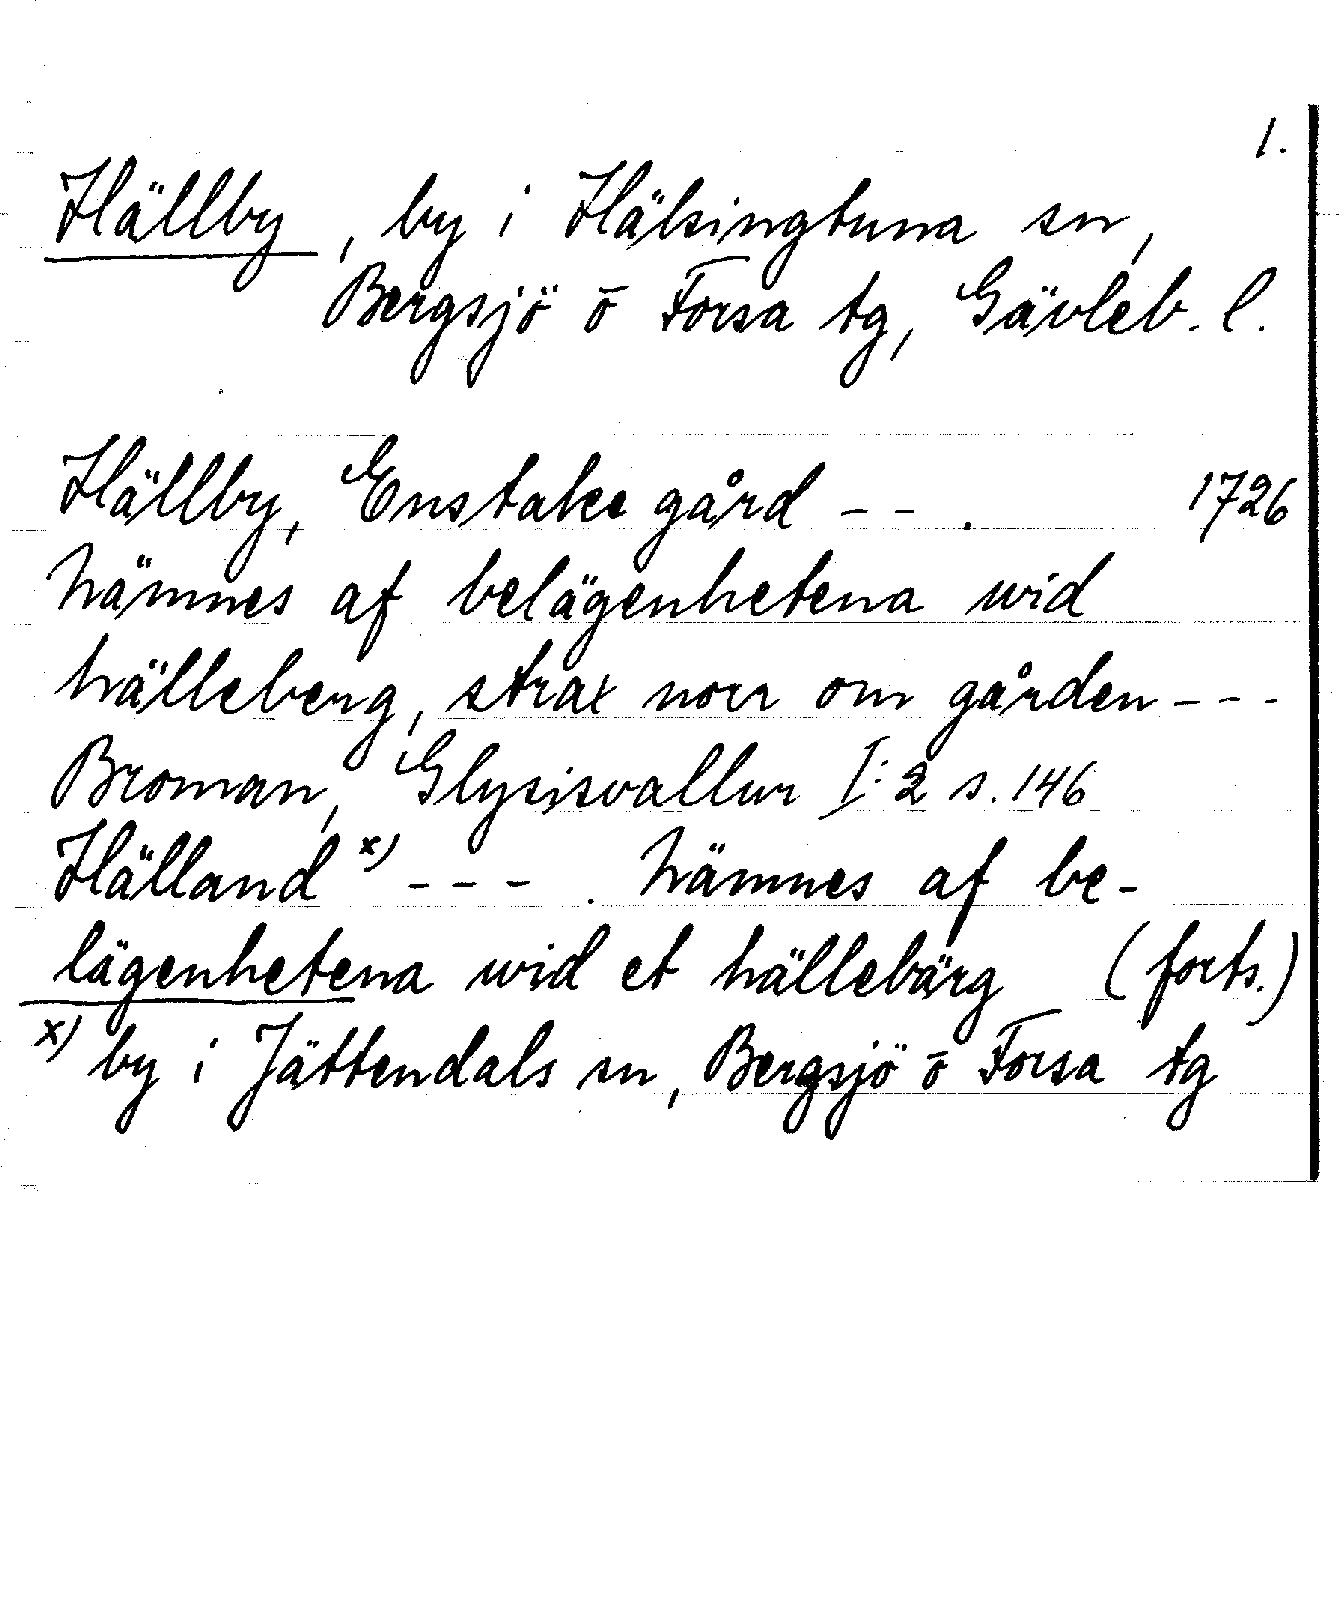 1.
Hällby, by i Hälsingtuna sn,
Bergsjö o Forsa tg, Gävleb. l.
Hällby, Enstake gård -- . 1726
Nämnes af belägenhetena wid
hälleberg, strax norr om gården ---
Broman, Glysisvallur I:2 s. 146
Hälland x) --- . Nämnes af be-
lägenhetena wid et hällebärg (forts.)
x) by i Jättendals sn, Bergsjö o Forsa tg